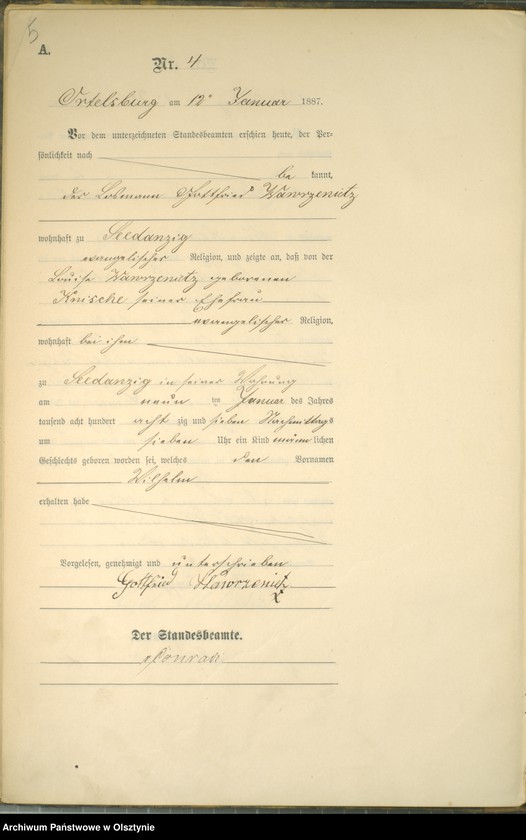 5
A.
Nr. 4
Ortelsburg am 12ten Januar 1887.
Vor dem unterzeichneten Standesbeamten erschien heute, der Per-
sönlichkeit nach
be kannt,
der Losmann Gottfried Wawrzenitz
wohnhaft zu Seedanzig
evangelischer Religion, und zeigte an, daß von der
Louise Wawrzenitz geborenen
Knische seiner Ehefrau
evangelischer Religion,
wohnhaft bei ihm
zu Seedanzig in seiner Wohnung
am neun ten Januar des Jahres
tausend acht hundert acht zig und sieben Nachmittags
um sieben Uhr ein Kind männ lichen
Geschlechts geboren worden sei, welches den Vornamen
Wilhelm
erhalten habe
Vorgelesen, genehmigt und unterschrieben
Gottfried Wawrzenitz
Der Standesbeamte.
Conrad
Archiwum Państwowe w Olsztynie